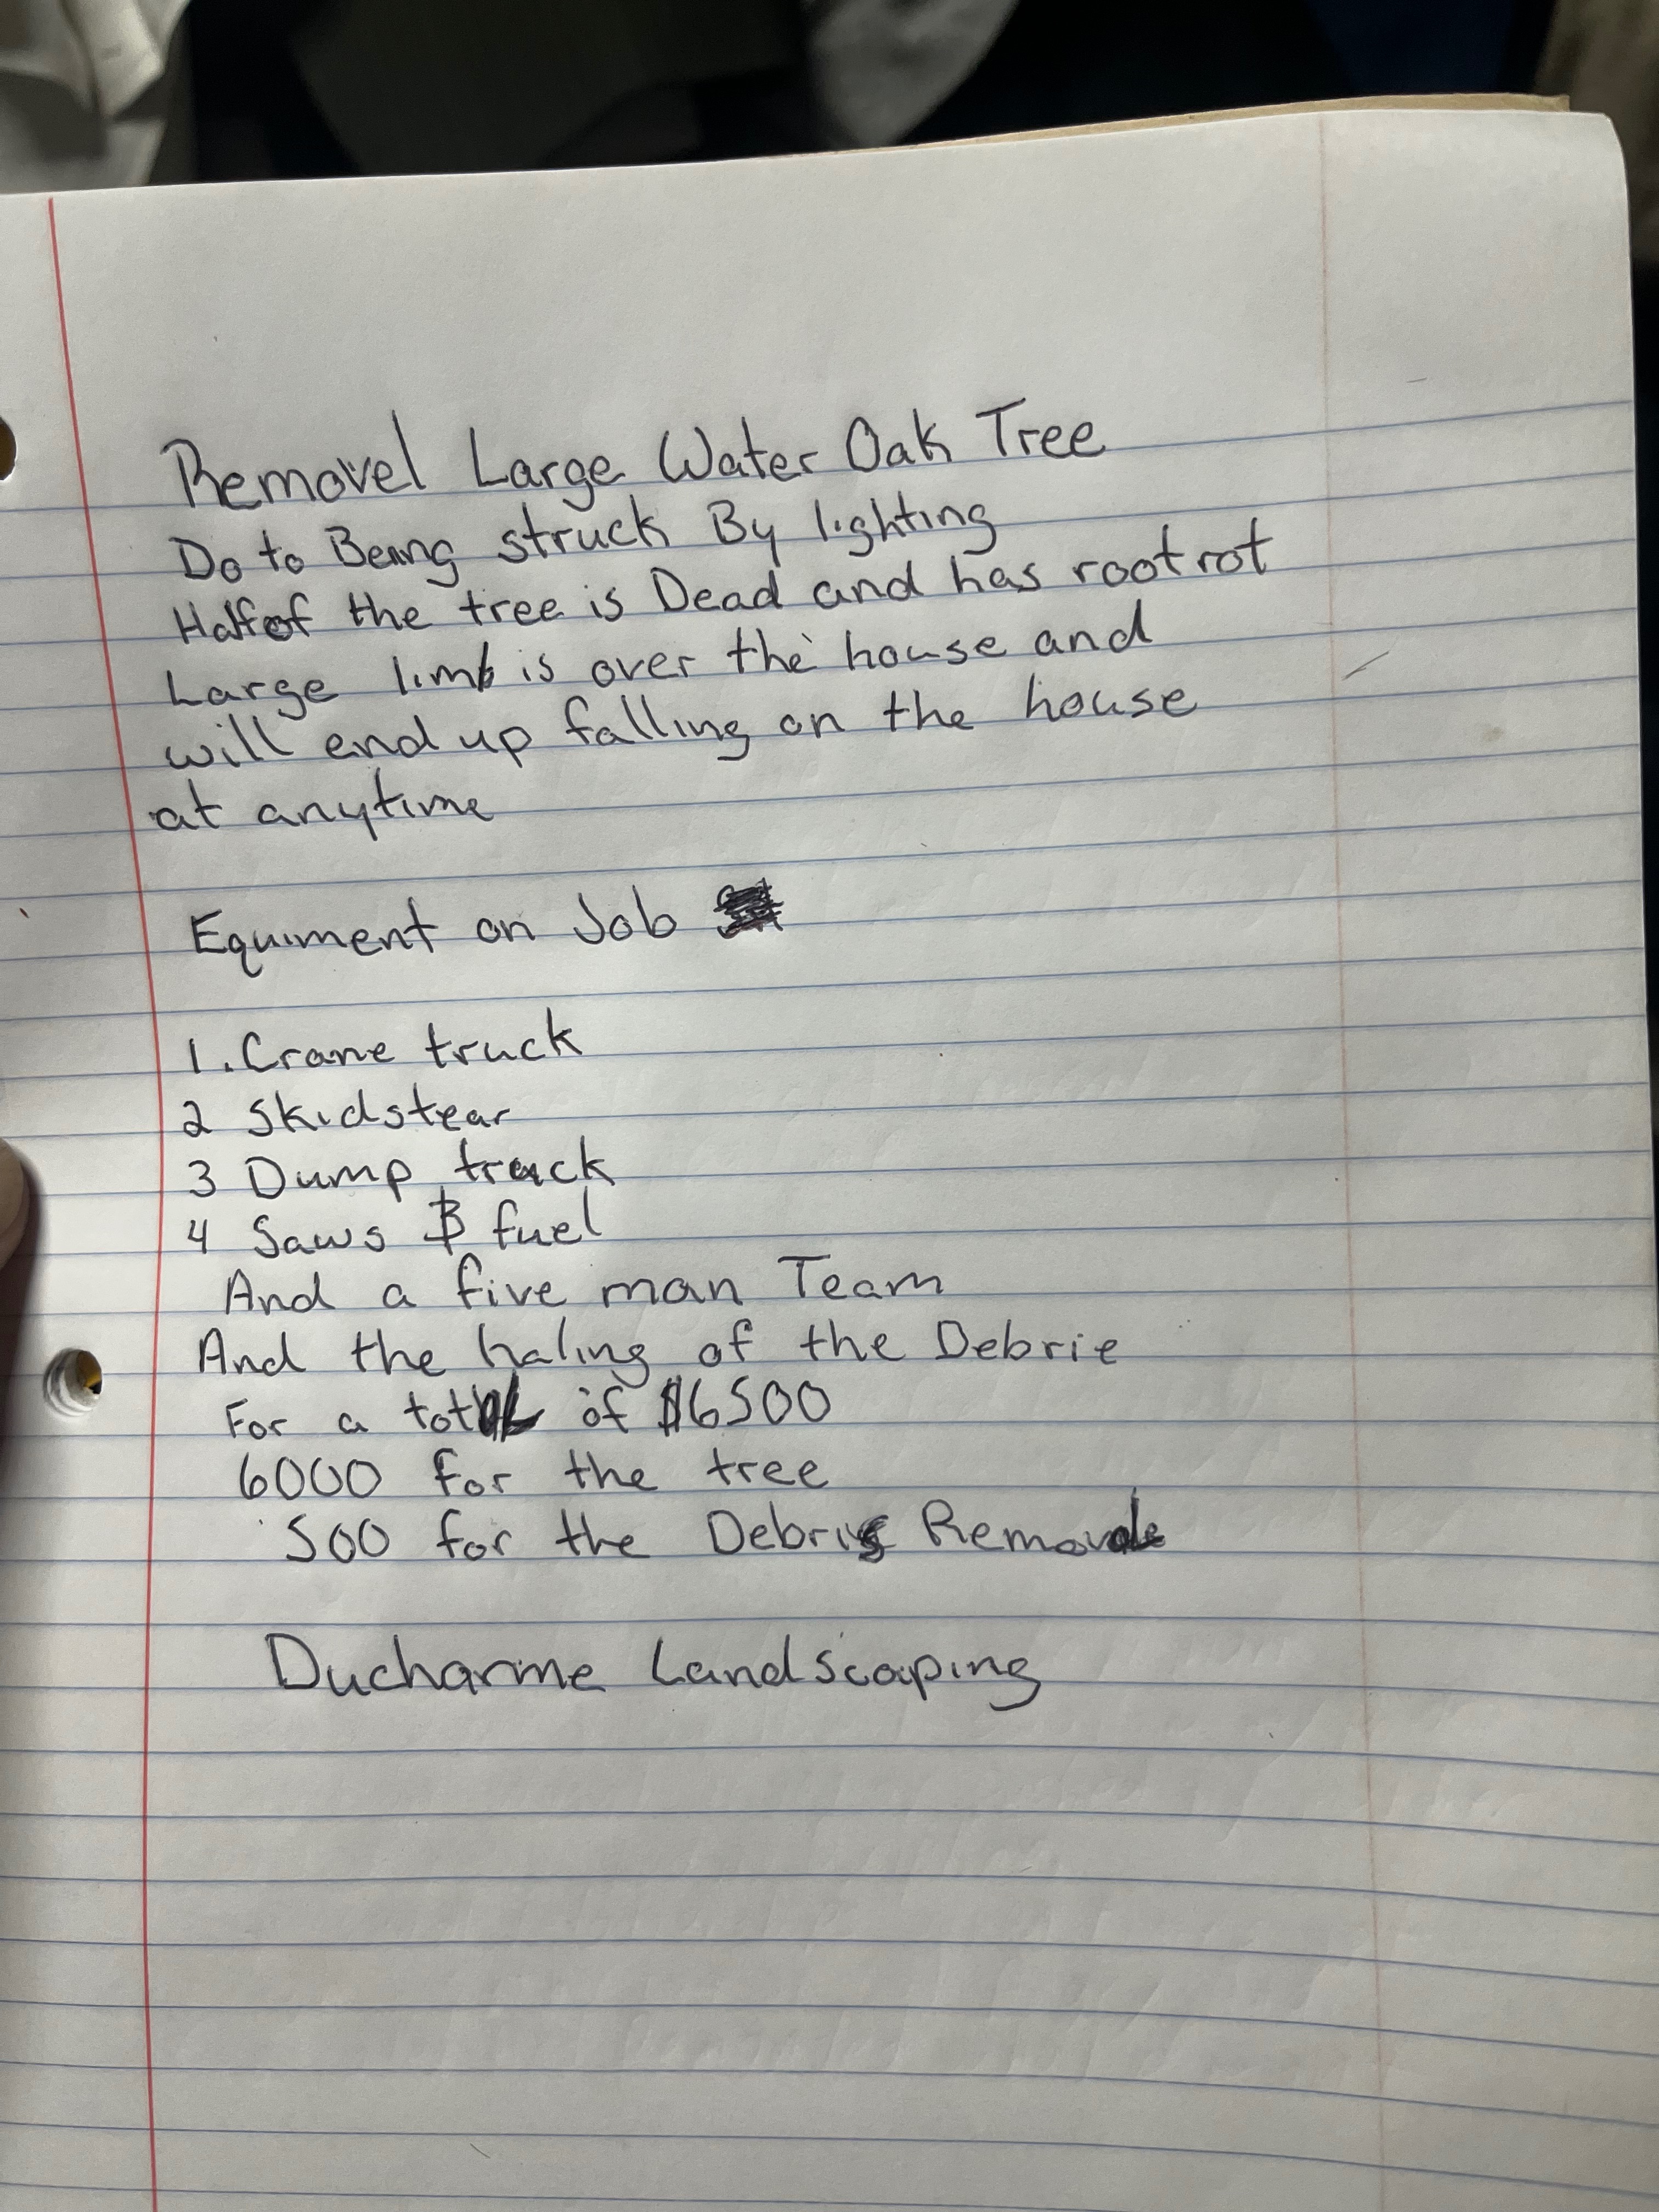 Removel Large Water Oak Tree
Do to Being struck By lighting
Half of the tree is Dead and has root rot
Large limb is over the house and
will end up falling on the house
at anytime
Equiment on Job
1. Crane truck
2 Skidstear
3 Dump truck
4 Saws & fuel
And a five man Team
And the haling of the Debrie
For a total of $6500
6000 for the tree
500 for the Debris Removale
Ducharme Landscaping